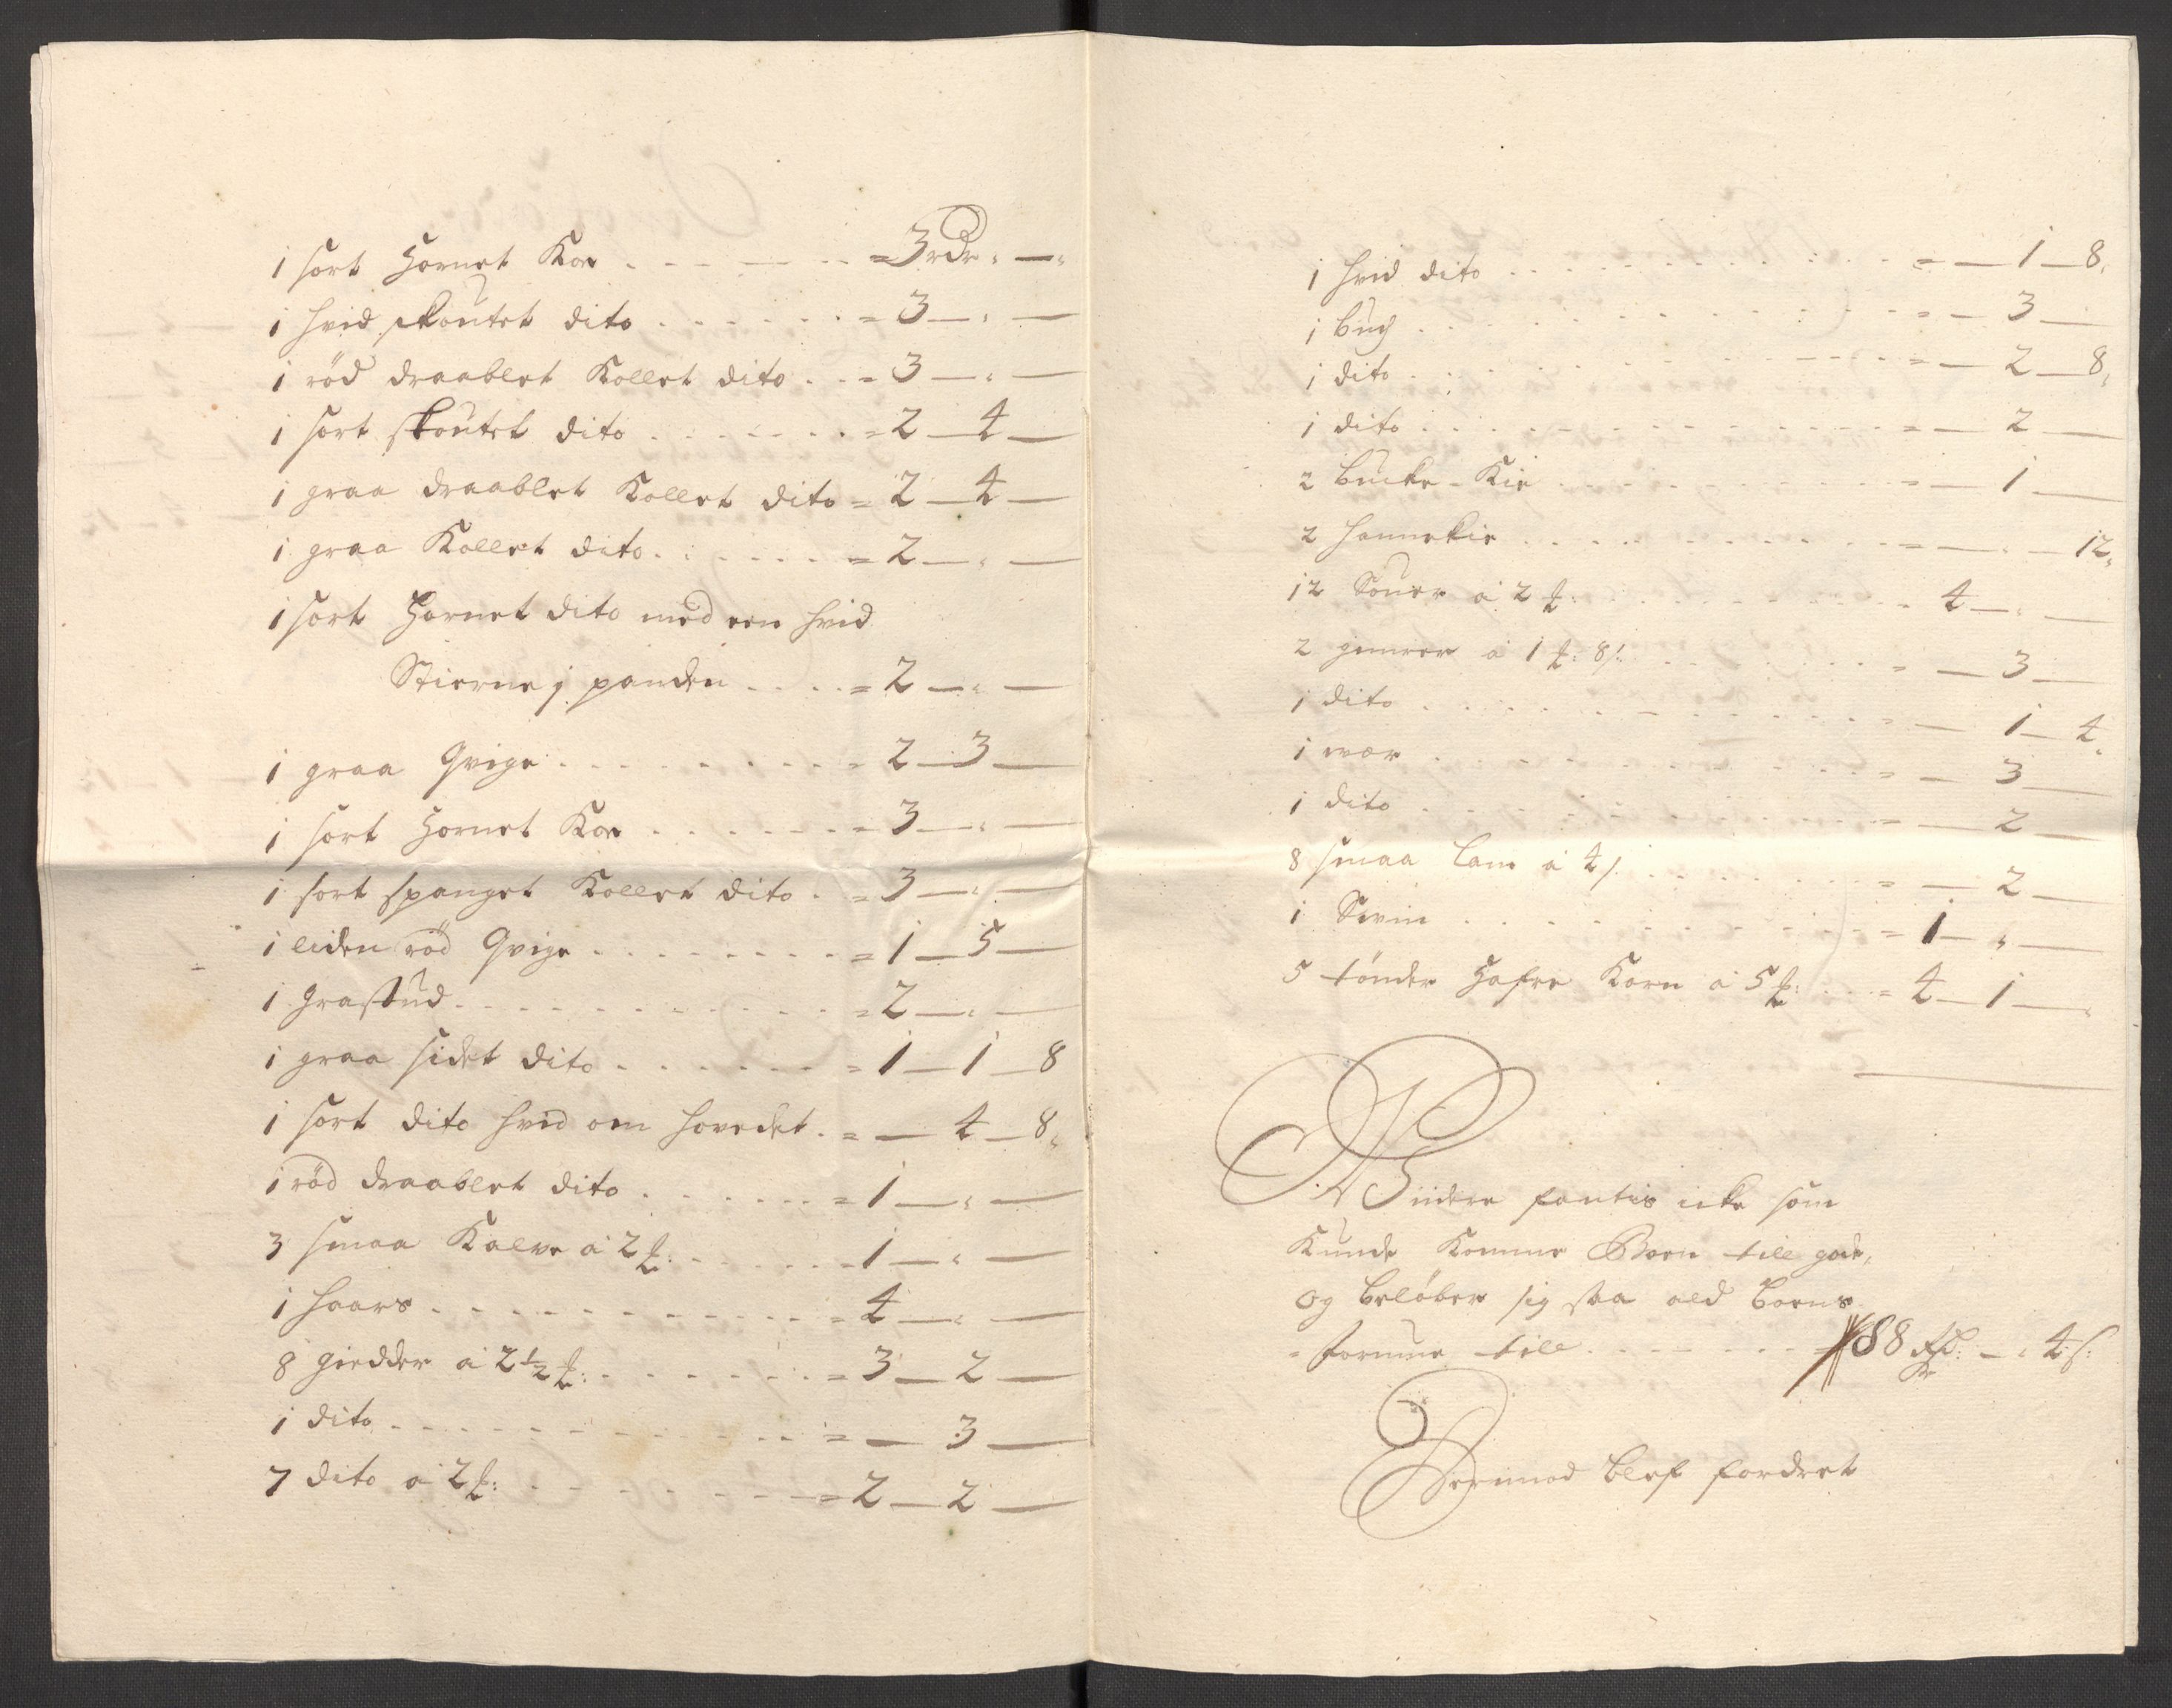 1 sort Hornet Koe . - - - - = 3 rdr " — "
1 hvid skoutet dito . . . . . . = 3 — " —
1 röd draablet Kollet dito . . = 3 — " —
1 sort skoutet dito . . . . . . = 2 — 4 —
1 graa draablet Kollet dito = 2 — 4 —
1 graa Kollet dito . . . . . . = 2 — " —
1 sort Hornet dito med een hvid
Stierne j panden . . . . = 2 — " —
1 graa Qvige . . . . . . . . . = 2 — 3 —
1 sort Hornet Koe . . . . . . = 3 — " —
1 sort spanget Kollet dito . = 3 — " —
1 liden röd Qvige . . . . . . . = 1 — 5 —
1 grastud . . . . . . . . . . . = 2 — " —
1 graa sidet dito . . . . . . = 1 — 1 — 8
1 sort dito hvid om hovedet . = — 4 — 8 "
1 röd draablet dito . . . . . . = 1 — " —
3 smaa Kalve a 2 . . . . . . 1 — " —
1 haars . . . . . . . . . . . = 4 — " —
8 giedder a 2 1/2 : . . . . . . = 3 — 2 —
1 dito . . . . . . . . . . . . = — 3 —
7 dito a 2 : . . . . . . . . = 2 — 2 —
1 hvid dito . . . . . . . . . . = — 1 — 8 "
1 buch . . . . . . . . . . . . = — 3 —
1 dito . . . . . . . . . . . . = — 2 — 8 "
1 dito . . . . . . . . . . . . = — 2 —
2 bucke-Kie . . . . . . . . . = — 1 —
2 hannekie . . . . . . . . . = — " — 12 "
12 Souer a 2 : . . . . . . . . . 4 — " —
2 gimrer a 1 : 8 s: . . . . . . = — 3 —
1 dito . . . . . . . . . . . . = — 1 — 4 "
1 wær . . . . . . . . . . . . = — 3 —
1 dito . . . . . . . . . . . . = — 2 —
8 smaa lam a 4 s . . . . . . . = — 2 —
1 Svin . . . . . . . . . . . = 1 — " —
5 tönder Hafre Korn a 5 : . . = 4 — 1 — "
Widere fantis icke som
Kunde Komme Boen till gode,
og belöber sig saa ald boens
formue till . . . . . . . 88 rdr: — " 4 s:
Derimod blef fordret